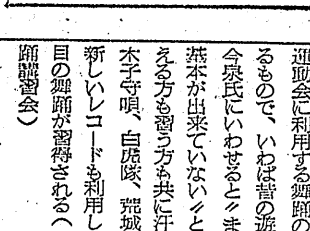 運動会に利用する舞踊の
るもので、いわば昔の遊
今泉氏にいわせると〃ま
基本が出来ていない〃と
える方も習う方も共に汗
木子守唄、白虎隊、荒城
新しいレコードも利用し
目の舞踊が習得される（
踊講習会）